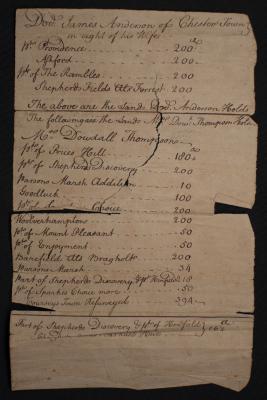 Doct. James Anderson of Chester Town
in right of his Wife
pt of Providence 200
Ashford 200
pt of The Rambles 200
Shepherds Fields Als Forrest 200
The above are the Lands Doct. Anderson Holds
The following the Lands Dowdl. Thompson Holds
Dowdall Thompson
pt of Prices Hill 180
pt of Shepherds Discovery 200
Parsons Marsh Addition 10
Goodluck 100
pt of Choice 200
Wolverhampton 200
pt of Mount Pleasant 50
pt of Enjoyment 50
Barefield Als Bagholt 200
Parsons Marsh 34
Part of Shepherds Discovery & pt of Henfield 18
pt of Sparkes Choice more 50
Town Resurveyed 394
Part of Shepherds Discovery & pt of Henfield